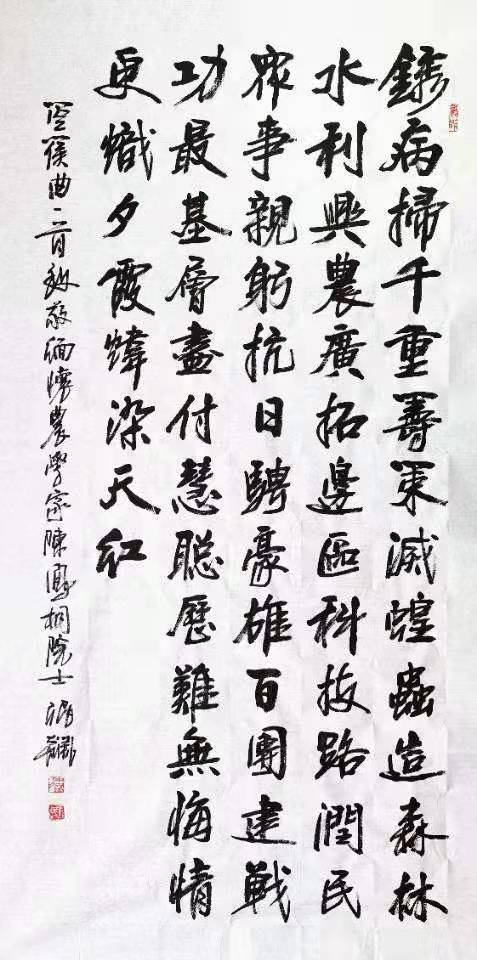 銹病掃千重籌策滅蝗蟲造森林
水利興農廣拓邊區科技路潤民
眾事親躬抗日騁豪雄百團建戰
功最基層盡付慧聰歷難無悔情
更熾夕霞煒染天紅
箜篌曲二首敬緬懷農學家陳鳳桐院士